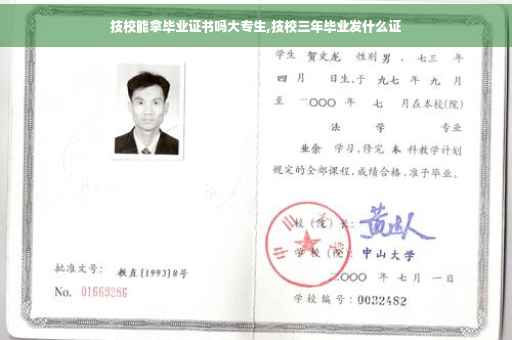 技校能拿毕业证书吗大专生,技校三年毕业发什么证
学生 贺文龙 性别 男 、七三 年
四 月 日生,于 九七 年 九 月
至 二〇〇〇 年 七 月在本校(院)
法 学 专业
业余 学习,修完 本 科教学计划
规定的全部课程,成绩合格,准予毕业。
校(院)长:
学校(院): 中山大学
二〇〇〇 年 七 月 一 日
批准文号: 教直[1993]8号
No. 01669286
学校编号: 0032482